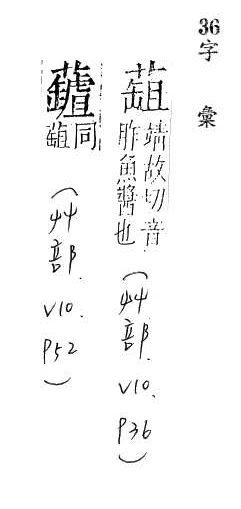 36
字彙
靖故切音
胙魚醬也
(艸部. V10. P36)
同
(艸部. V10. P52)